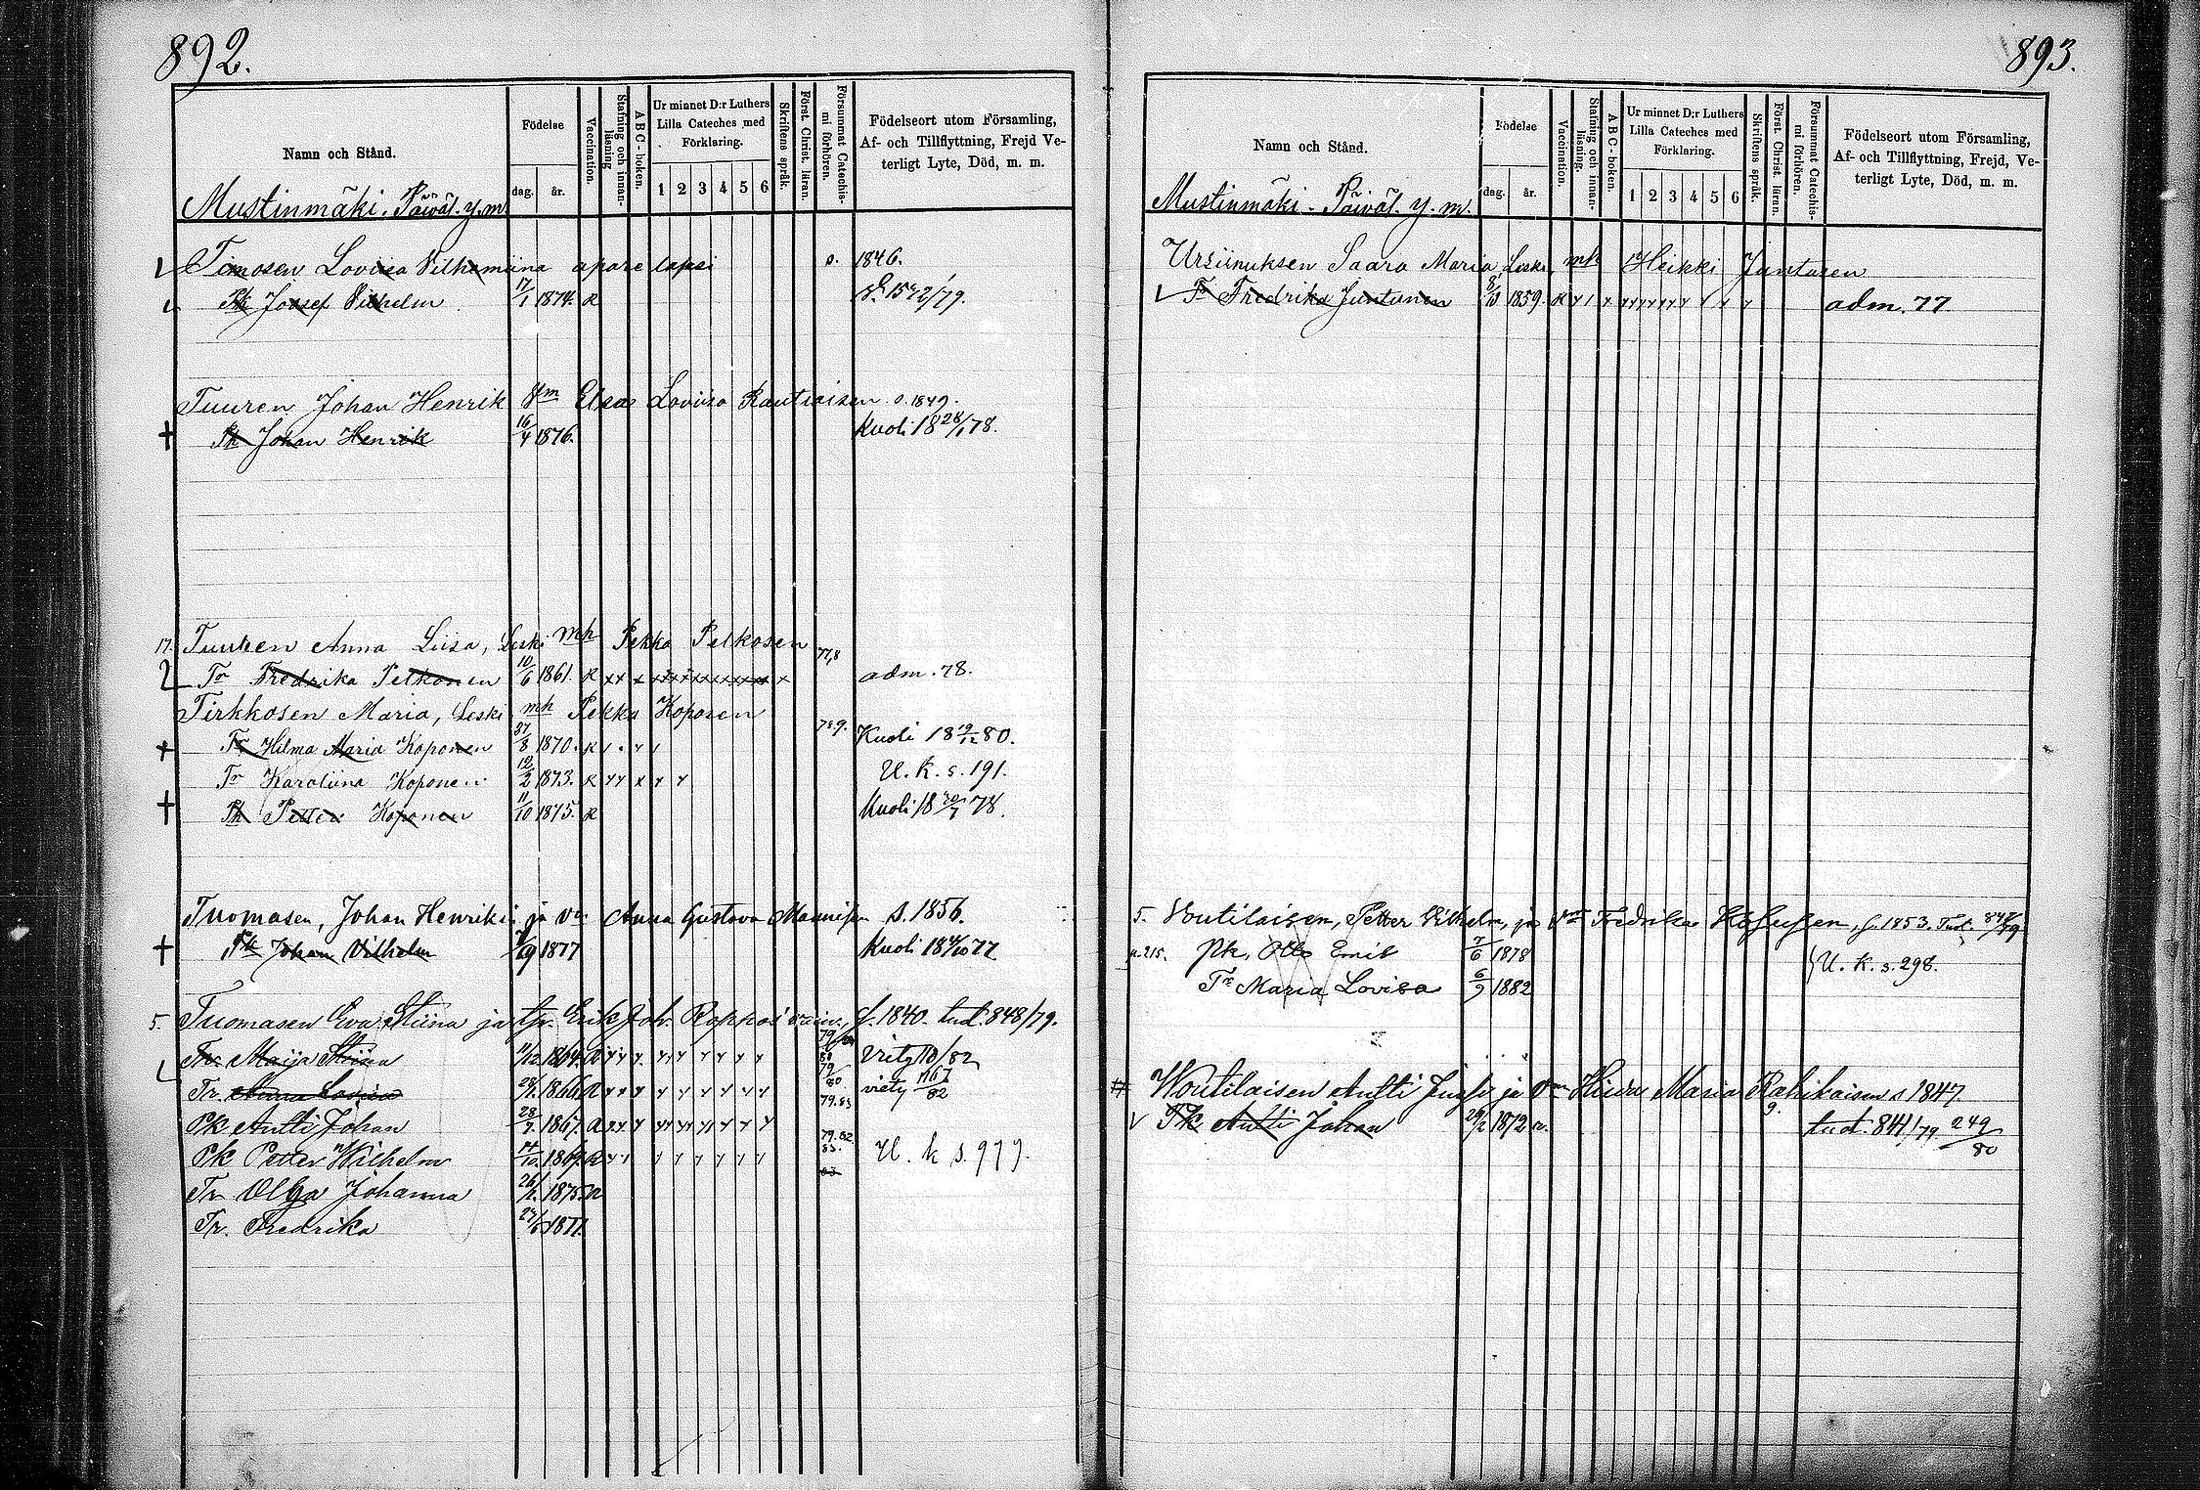 892.
Namn och Stånd.
Födelse
dag. år.
Vaccination.
Stafning och innan-läsning
ABC-boken.
Ur minnet D:r Luthers Lilla Cateches med Förklaring.
1 2 3 4 5 6
Skriftens språk.
Först. Christ. läran.
Försummat Catechis-mi förhören.
Födelseort utom Församling, Af- och Tillflyttning, Frejd Ve-terligt Lyte, Död, m. m.
Mustinmäki. Päiväl. y. m.
Timosen Loviisa Vilhemiina apare lapsi s. 1846.
Pk Josef Vilhelm 17/1 1874. R
Tuuren Johan Henrik Elsa Loviisa Rautiaisen s. 1849.
Pk Johan Henrik 16/4 1876. Kuoli 18 28/1 78.
17. Anna Liisa, Leski mh Pekka Pelkosen
Tr Fredrika Pelkonen 10/6 1861. R adm. 78.
Tirkkosen Maria, Leski mh Pekka Koposen
Tr Hilma Maria Koponen 1870. R Kuoli 18 19/12 80.
Tr Karoliina Koponen 12/2 1873. R U. K. s. 191.
Pk Petter Koponen 11/10 1875. R Kuoli 18 78.
Tuomasen, Johan Henrikin ja vn Anna Gustava s. 1856.
Pk Johan Vilhelm 1877 Kuoli 18 77
5. Tuomasen Eva Stiina ja Erik Joh. s. 1840. tud. 848/79.
Tr. Maija Stiina 1864. 82
Tr. Anna Loviisa 1866 viety 82
Pk Antti Johan 1867.
Pk Petter Wilhelm U. k s. 977.
Tr Olga Johanna 1875.
Tr. Fredrika 1877.
893.
Namn och Stånd.
Födelse
dag. år.
Vaccination.
Stafning och innan-läsning.
ABC-boken.
Ur minnet D:r Luthers Lilla Cateches med Förklaring.
1 2 3 4 5 6
Skriftens språk.
Först Christ. läran.
Försummat Catechis-mi förhören.
Födelseort utom Församling, Af- och Tillflyttning, Frejd, Ve-terligt Lyte, Död, m. m.
Mustinmäki - Päiväl. y. m.
Ursiinuksen Saara Maria, Leski, mh Heikki Juntusen
Tr Fredrika Juntunen 8/10 1859. adm. 77.
5. Voutilaisen, Petter Vilhelm, ja Vn Fredrika s. 1853.
s. 215. Pk, Otto Emil 7/6 1878 U. K. s. 298.
Tr Maria Lovisa 6/9 1882
Woutilaisen Antti ja Maria Rahikaisen s 1847.
Pk Antti Johan 1872 tud. 841/79. 249/80